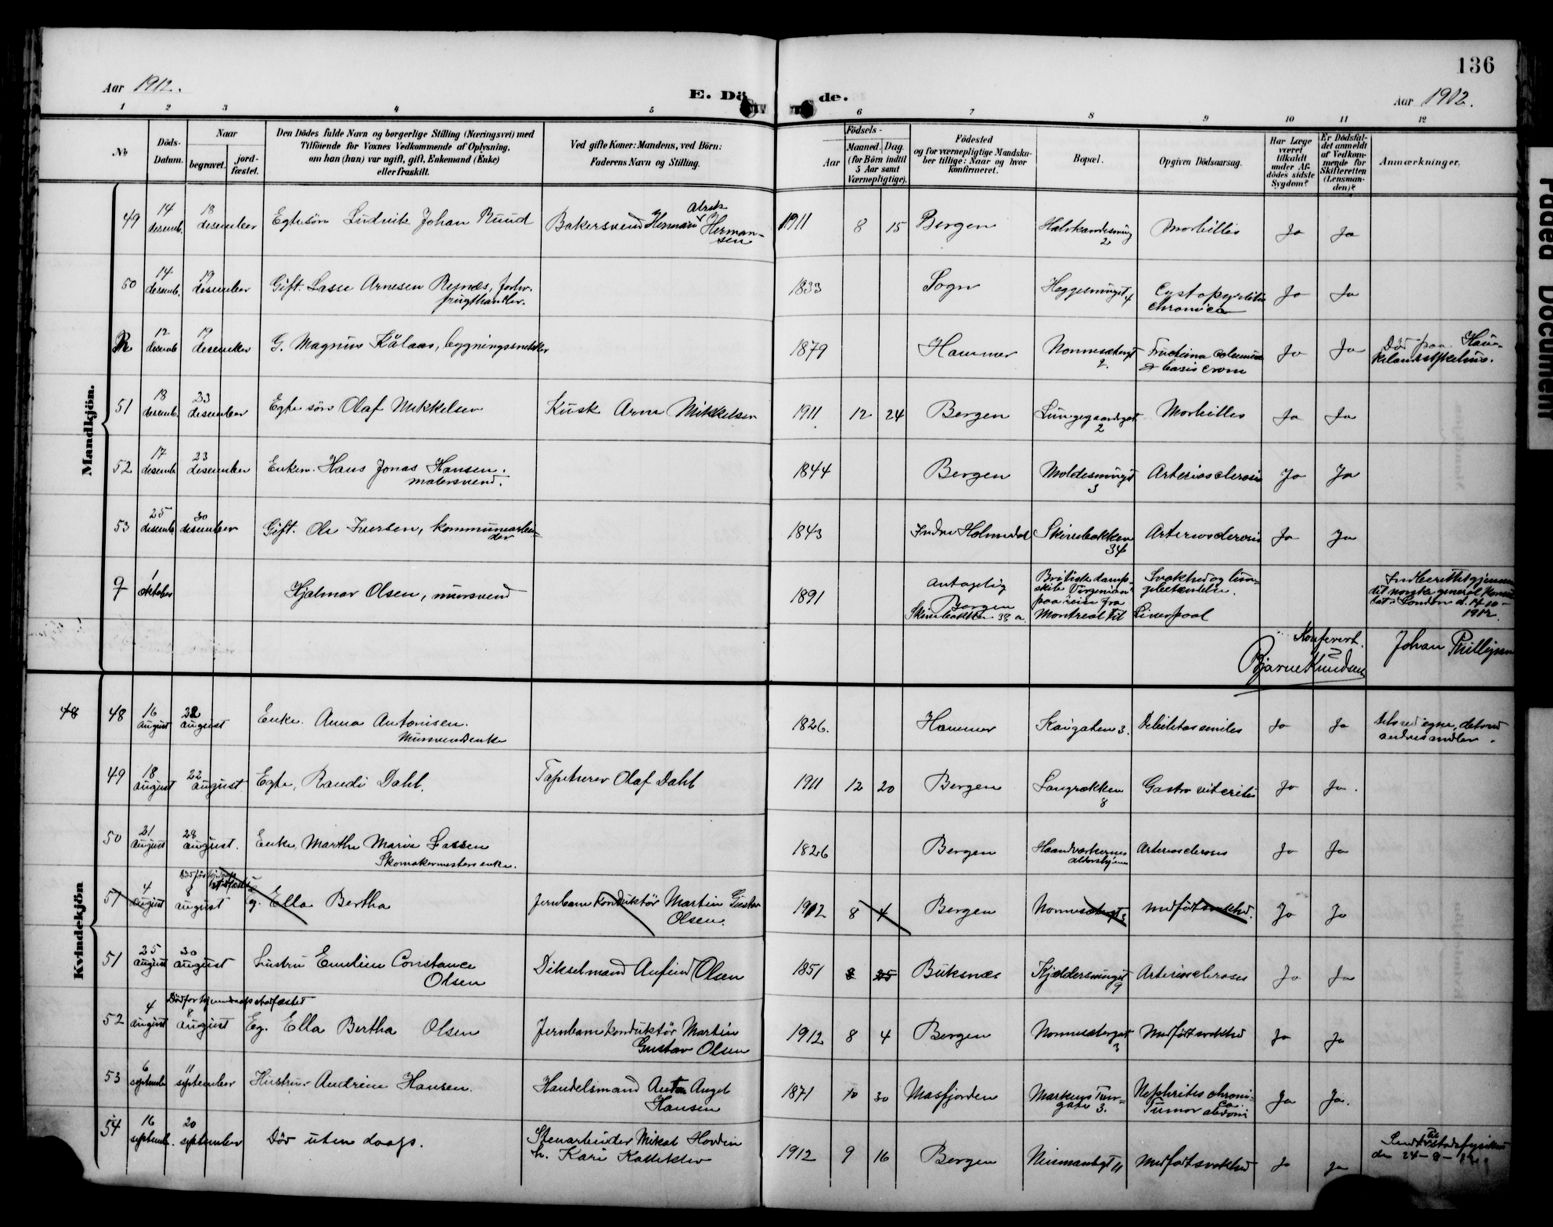 136
Aar 1912.
E. Dö de.
Aar 1912.
1 2 3 4 5 6 7 8 9 10 11 12
No
Döds-Datum.
Naar
begravet.
jord-fæstet.
Den Dödes fulde Navn og borgerlige Stilling (Næringsvei) med
Tilföiende for Voxnes Vedkommende af Oplysning,
om han (hun) var ugift, gift, Enkemand (Enke)
eller fraskilt.
Ved gifte Koner: Mandens, ved Börn:
Faderens Navn og Stilling.
Födsels-
Aar
Maaned. Dag.
(for Börn indtil
5 Aar samt
Værnepligtige).
Födested
og for værnepligtige Mandska-
ber tillige: Naar og hvor
konfirmeret.
Bopæl.
Opgiven Dödsaarsag.
Har Læge
været
tilkaldt
under Af-
dödes sidste
Sygdom?
Er Dödsfal-
det anmeldt
af Vedkom-
mende for
Skifteretten
(Lensman-
den)?
Anmærkninger.
Mandkjön.
49 14 desemb. 18 desember Egtesön Ludvik Johan Ruud Bakersvend Hermansen 1911 8 15 Bergen 2 Morbilles Ja Ja
50 14 desemb. 19 desember Gift. Lasse Arnesen Reinæs, forhv.
frugthandler. 1833 Sogn Heggesmuget 4 Cystopyelitis
chronica Ja Ja
12 desemb 19 desember G. Magnus Kålaas, bygningssnekker 1879 Hammer Nonnesætergt
2. Fractura columnæ
& basis cranii Ja Ja Död paa Hau-
kelandsykehus.
51 18 desemb. 23 desember Egte sön Olaf Mikkelsen Kusk Arne Mikkelsen 1911 12 24 Bergen Lungegaardsgt
2 Morbilles Ja Ja
52 17 desemb. 23 desember Enkem. Hans Jonas Hansen.
malersvend. 1844 Bergen Moldesmuget
3 Arteriosclerosis Ja Ja
53 25 desemb. 30 desember Gift. Ole Iversen, kommunearbei-
der 1843 Indre Holmedal Skivebakken
34 Arteriosclerosis Ja Ja
9 1 oktober Hjalmar Olsen, mursvend 1891 antagelig
Bergen
Skivebakken 38 a Britisk damp-
skib Virginian
paa reise fra
Montreal til Liverpool Svakhed og lun-
gebetændelse. Indberettet gjennem
det norske general konsu-
lat i London d. 14-10-
1912.
Konferert.
Bjarne Knudsen Johan Phillipsen
Kvindekjön
48 48 16 august 22 august Enke. Anna Antonisen.
Mursvendenke 1826. Hammer Kaigaten 3. Debilitas senilis Ja Ja
49 18 august 22 august Egte, Randi Dahl. Tapetserer Olaf Dahl 1911 12 20 Bergen Langrækken
8 Gastro enteritis Ja Ja.
50 21 august 28 august. Enke, Marthe Marie Lassen
Skomakermesters enke. 1826 Bergen Haandværkernes
aldershjem Arteriosclerosis Ja Ja
51 4 august 8 august g. Ella Bertha Jernbanekonduktör Martin Gustav
Olsen. 1912 8 4 Bergen Nonnesætergt 3 medfödt svakhed. Ja Ja
51 25 august 30 august Hustru Emiline Constance
Olsen Dikselmand Anfind Olsen 1851 8 25 Buksnæs Kjeldersmuget
9 Arteriosclerosis Ja Ja
52 4 august Död for hjemmedaap stadfæstet
8 august Eg. Ella Bertha Olsen Jernbanekonduktör Martin
Gustav Olsen 1912 8 4 Bergen Nonnesætergt
3 Medfödt svakhed Ja Ja
53 6 septemb 11 september Hustru Andrine Hansen. Handelsmand Anton Angel
Hansen 1871 10 30 Masfjorden Markeng Tver-
gate 3. Nephritis chroni-
ca.
Tumor abdom. Ja Ja.
54 16 septemb. 20 september Död uten daab. Stenarbeider Mikal Hovden
h. Kari 1912 9 16 Bergen Neumansgt 11 medfödt svakhed Ja Ja
den 24-8-
Faded Document